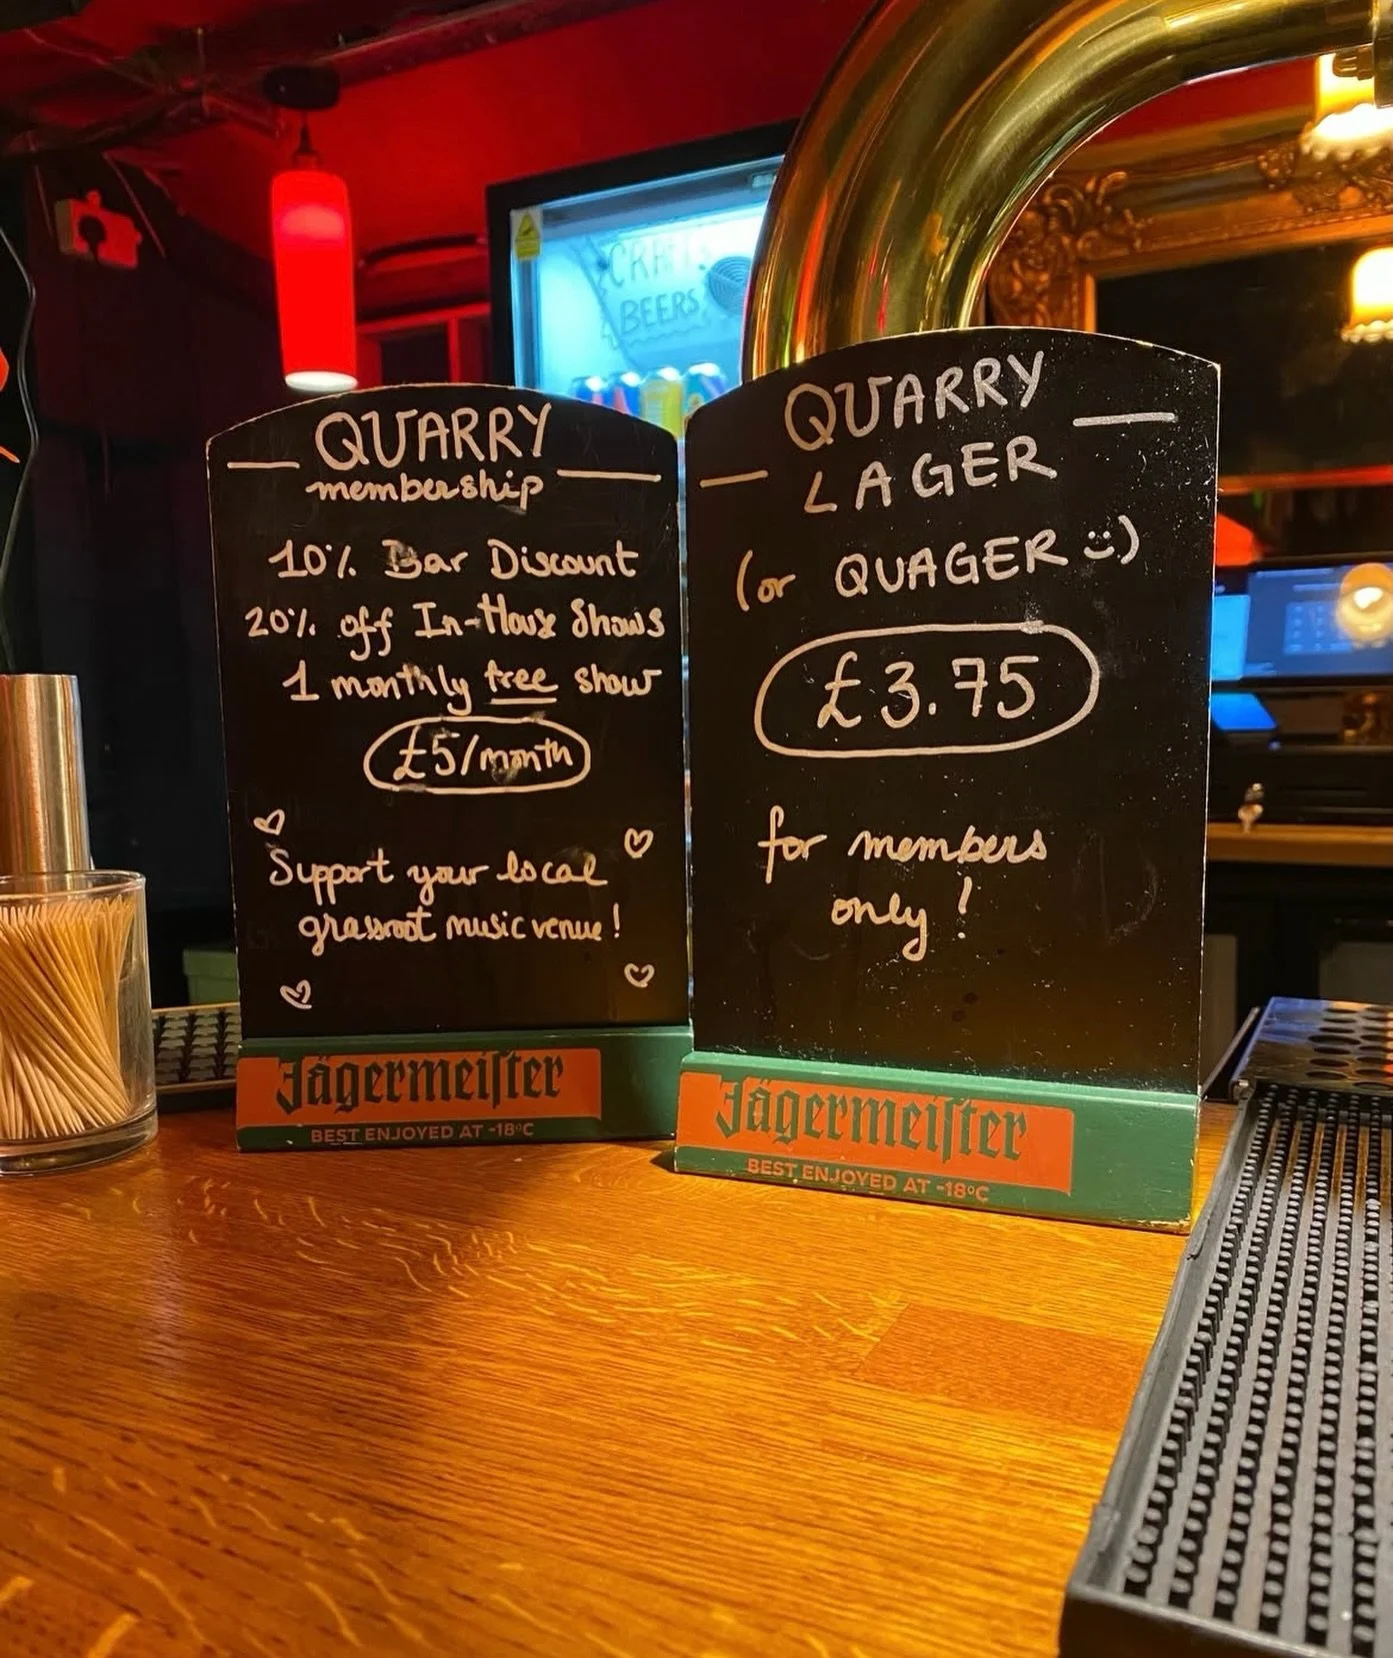 CRAFT
BEERS
QUARRY
membership
10% Bar Discount
20% off In-House Shows
1 monthly free show
£5/month
Support your local
grassroot music venue!
Jägermeiſter
BEST ENJOYED AT -18°C
QUARRY
LAGER
(or QUAGER :))
£3.75
for members
only!
Jägermeiſter
BEST ENJOYED AT -18°C